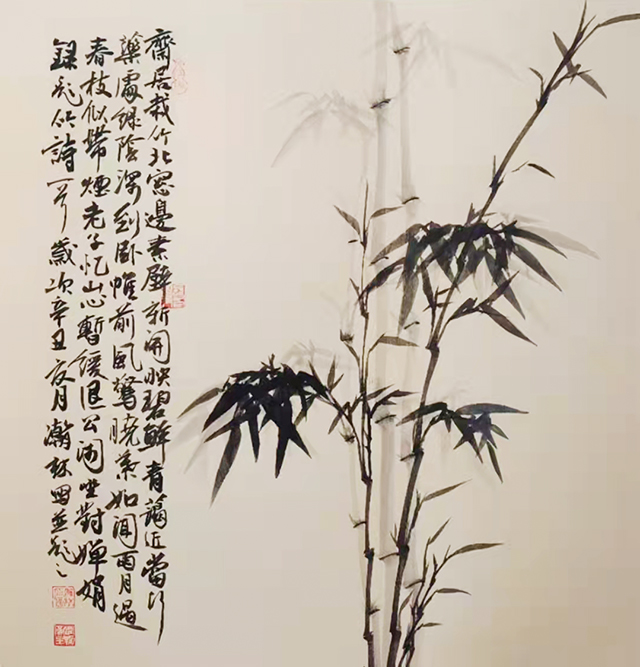 齋居栽竹北窓邊素壁新開映碧鮮青藹近當行
藥處緑陰深到卧帷前風驚曉葉如聞雨月過
春枝似帶煙老子忆山心暫緩退公閑坐對嬋娟
録題竹詩一首歲次辛丑夏月瀚林